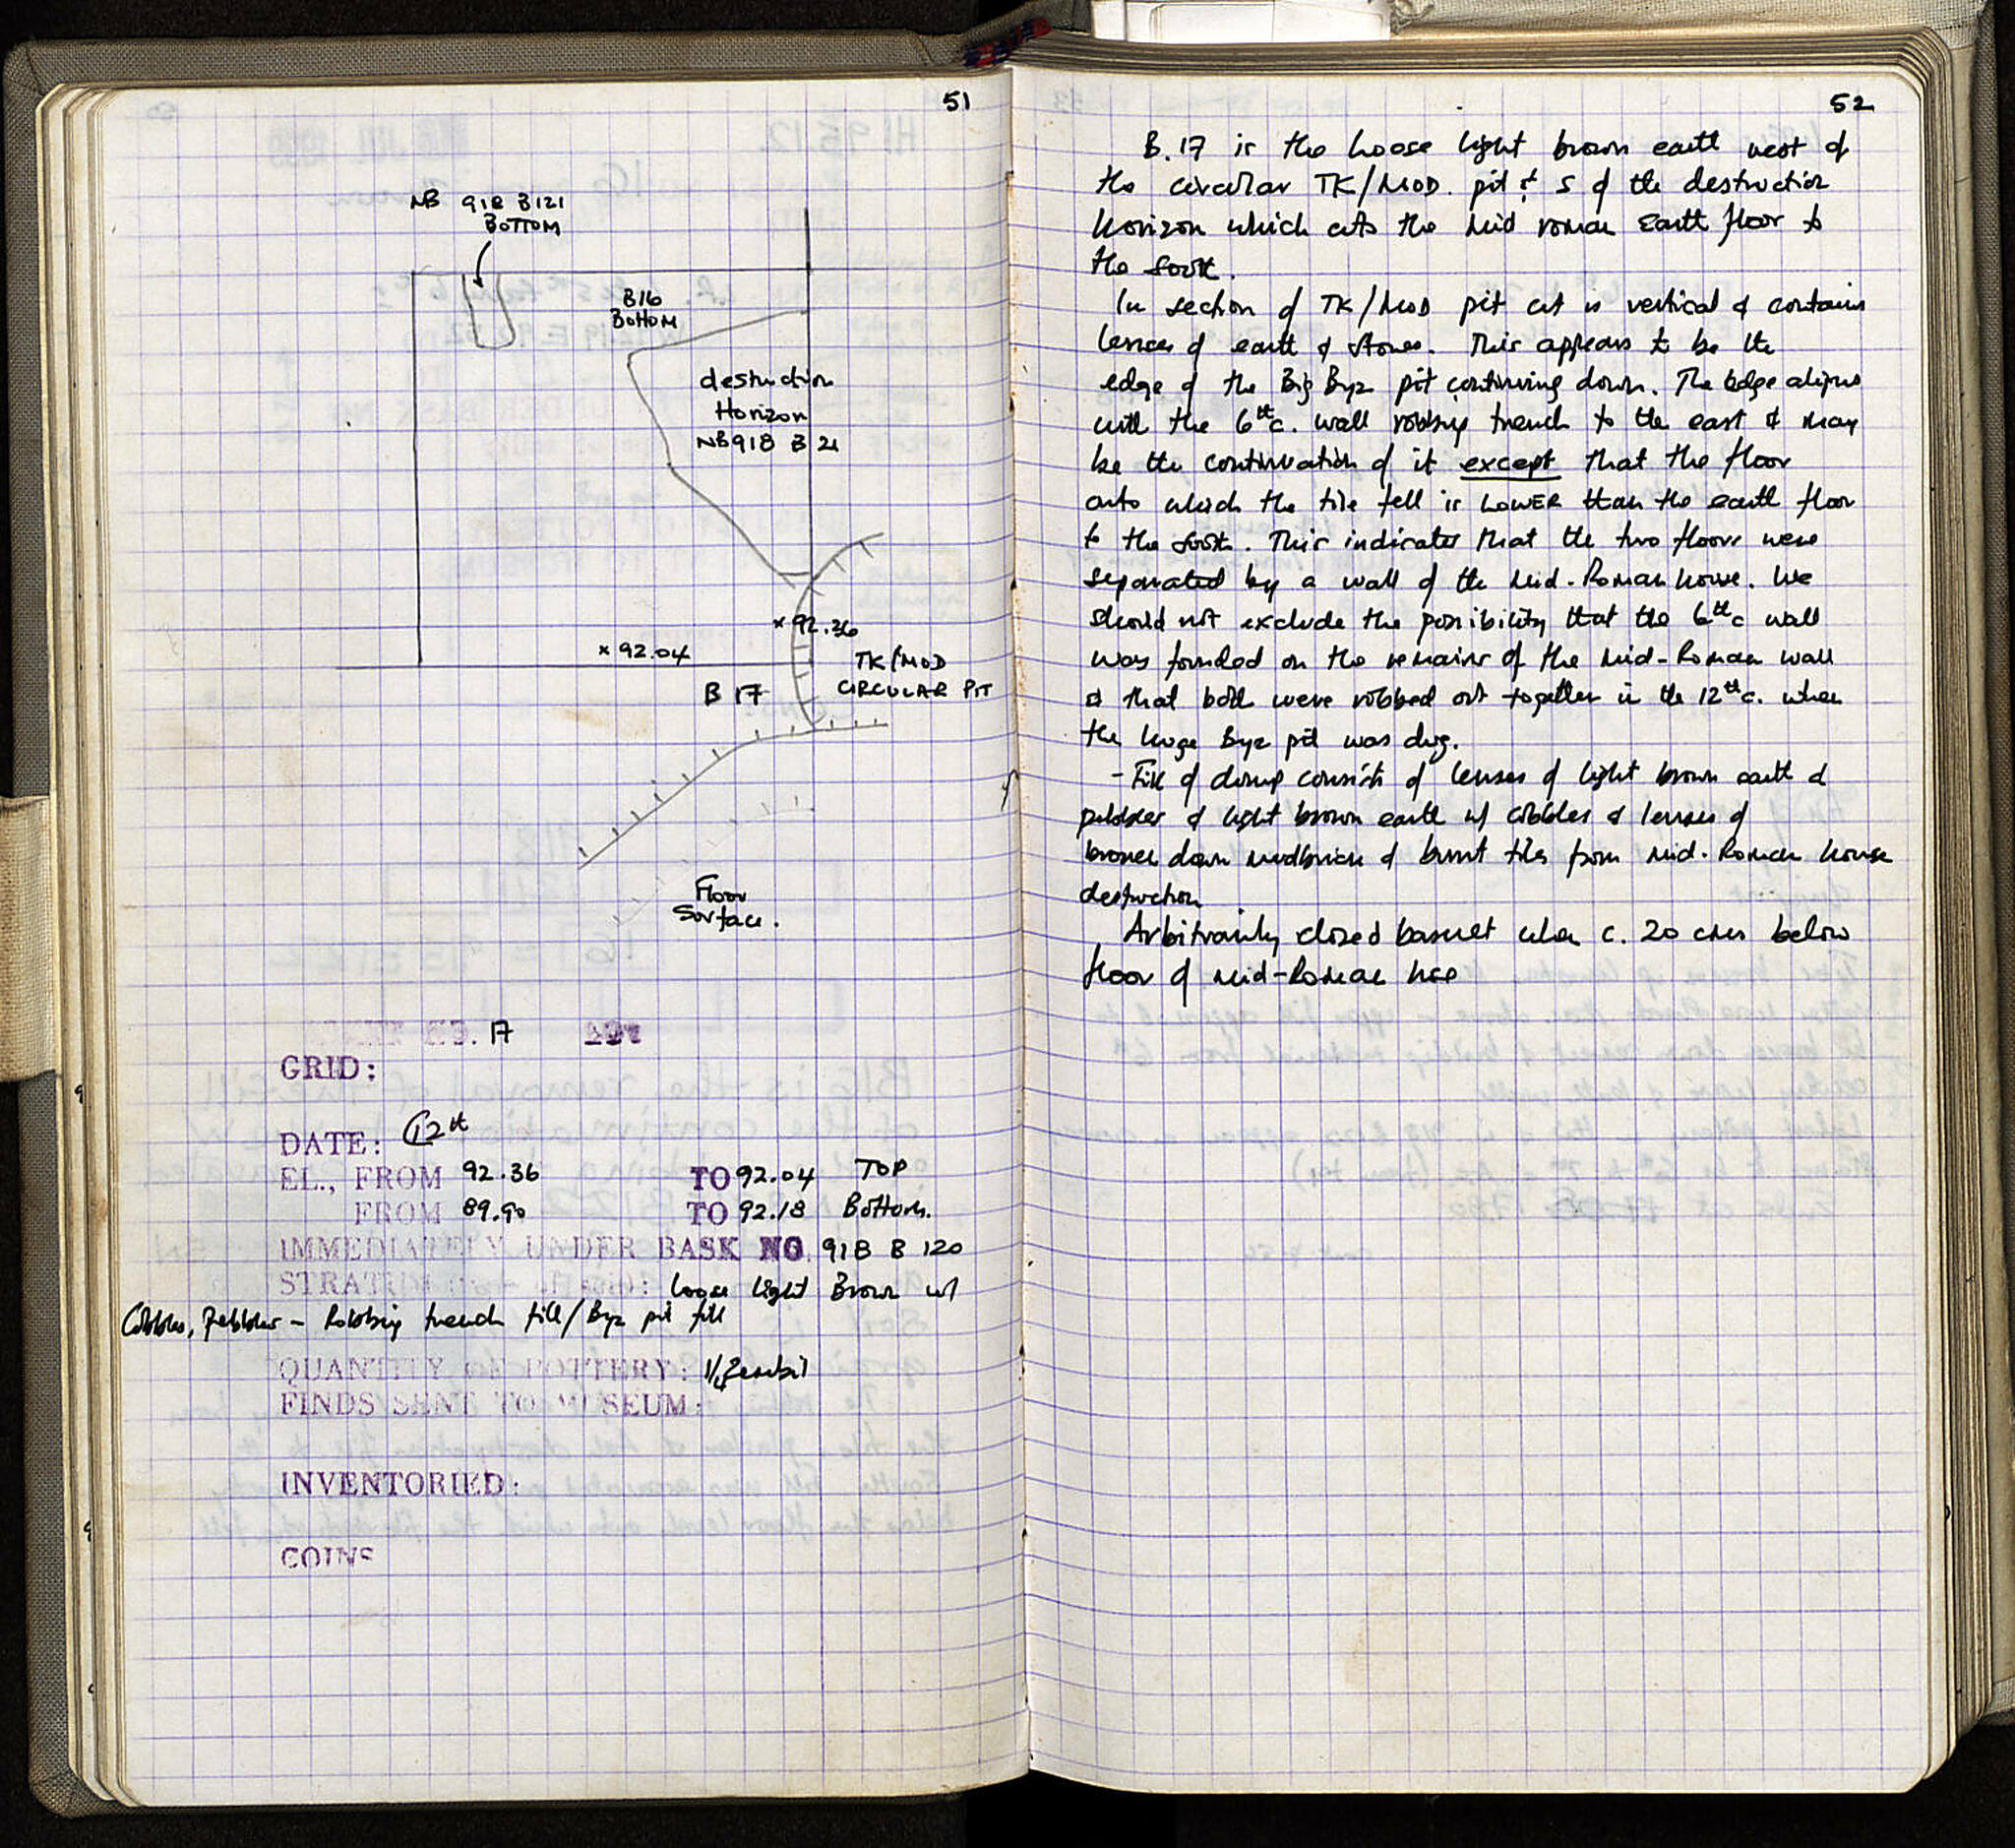 51
NB 918 B121
BOTTOM
B16
Bottom
destruction
Horizon
NB918 B 21
x 92.36
x 92.04
TK/MOD
CIRCULAR PIT
B 17
Floor
Surface.
17
GRID:
DATE: 12th
EL., FROM 92.36 TO 92.04 TOP
FROM 89.90 TO 92.18 Bottom.
IMMEDIATELY UNDER BASK NO. 918 B 120
loose light Brown w/
Cobbles, Pebbles - Robbing trench fill/Byz pit fill
QUANTITY OF POTTERY: 1/4 Zembil
FINDS SENT TO MUSEUM:
INVENTORIED:
COINS
52
B. 17 is the loose light brown earth west of
the circular TK/MOD. pit & S of the destruction
Horizon which cuts the Mid roman Earth floor to
the South.
In section of TK/MOD pit cut is vertical & contains
lenses of earth & stones. This appears to be the
edge of the Big Byz pit continuing down. The edge aligns
with the 6th c. wall robbing trench to the east & may
be the continuation of it except that the floor
onto which the tile fell is LOWER than the earth floor
to the South. This indicates that the two floors were
separated by a wall of the Mid-Roman house. We
should not exclude the possibility that the 6th c wall
was founded on the remains of the Mid-Roman wall
& that both were robbed out together in the 12th c. when
the huge Byz pit was dug.
- Fill of dump consists of lenses of light brown earth &
pebbles & light brown earth w/ cobbles & lenses of
broken down mudbrick & burnt tiles from Mid-Roman house
destruction
Arbitrarily closed basket when c. 20 cms below
floor of Mid-Roman hse